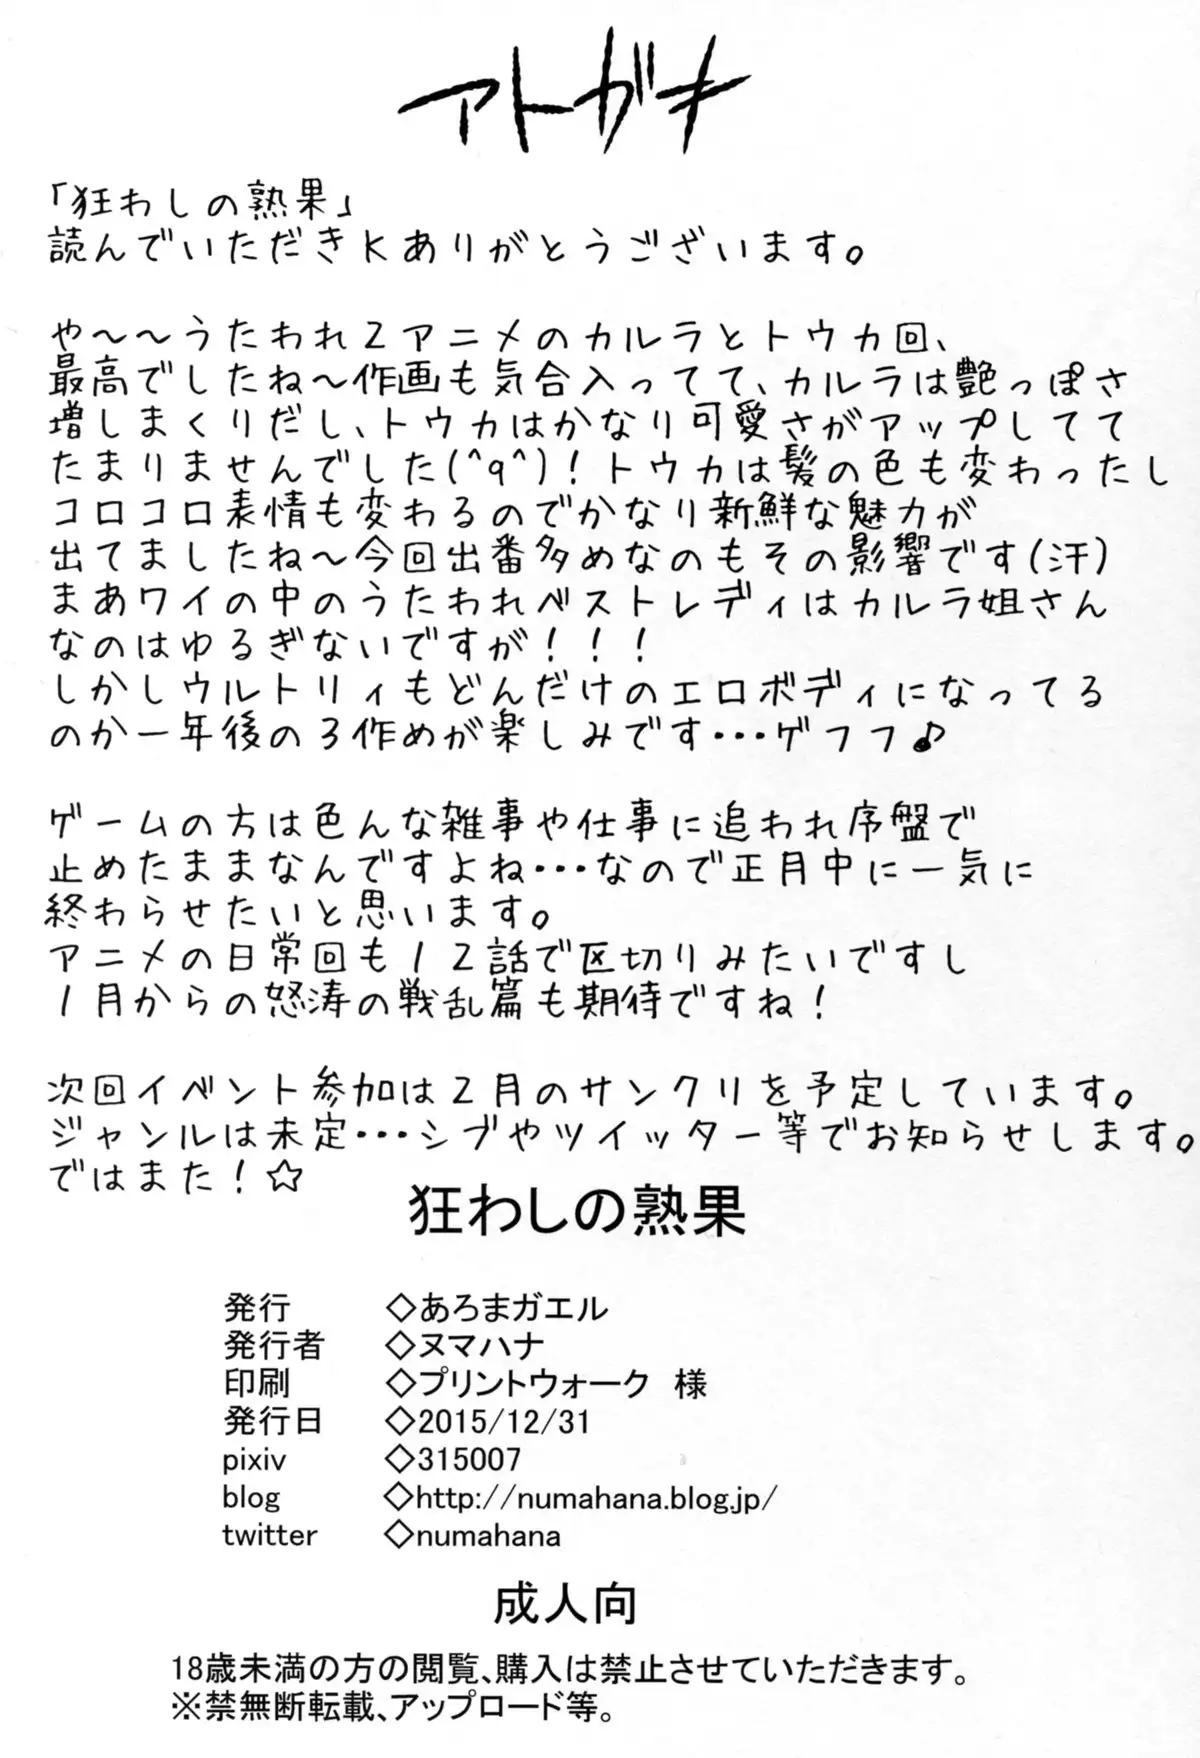 アトガキ
「狂わしの熟果」
読んでいただきKありがとうございます。
や～～うたわれ2アニメのカルラとトウカ回、
最高でしたね～作画も気合入ってて、カルラは艶っぽさ
増しまくりだし、トウカはかなり可愛さがアップしてて
たまりませんでした(^q^)！トウカは髪の色も変わったし
コロコロ表情も変わるのでかなり新鮮な魅力が
出てましたね～今回出番多めなのもその影響です(汗)
まあワイの中のうたわれベストレディはカルラ姐さん
なのはゆるぎないですが！！！
しかしウルトリィもどんだけのエロボディになってる
のか一年後の3作めが楽しみです・・・ゲフフ♪
ゲームの方は色んな雑事や仕事に追われ序盤で
止めたままなんですよね・・・なので正月中に一気に
終わらせたいと思います。
アニメの日常回も12話で区切りみたいですし
1月からの怒涛の戦乱篇も期待ですね！
次回イベント参加は2月のサンクリを予定しています。
ジャンルは未定・・・シブやツイッター等でお知らせします。
ではまた！☆
狂わしの熟果
発行 ◇あろまガエル
発行者 ◇ヌマハナ
印刷 ◇プリントウォーク 様
発行日 ◇2015/12/31
pixiv ◇315007
blog ◇http://numahana.blog.jp/
twitter ◇numahana
成人向
18歳未満の方の閲覧、購入は禁止させていただきます。
※禁無断転載、アップロード等。